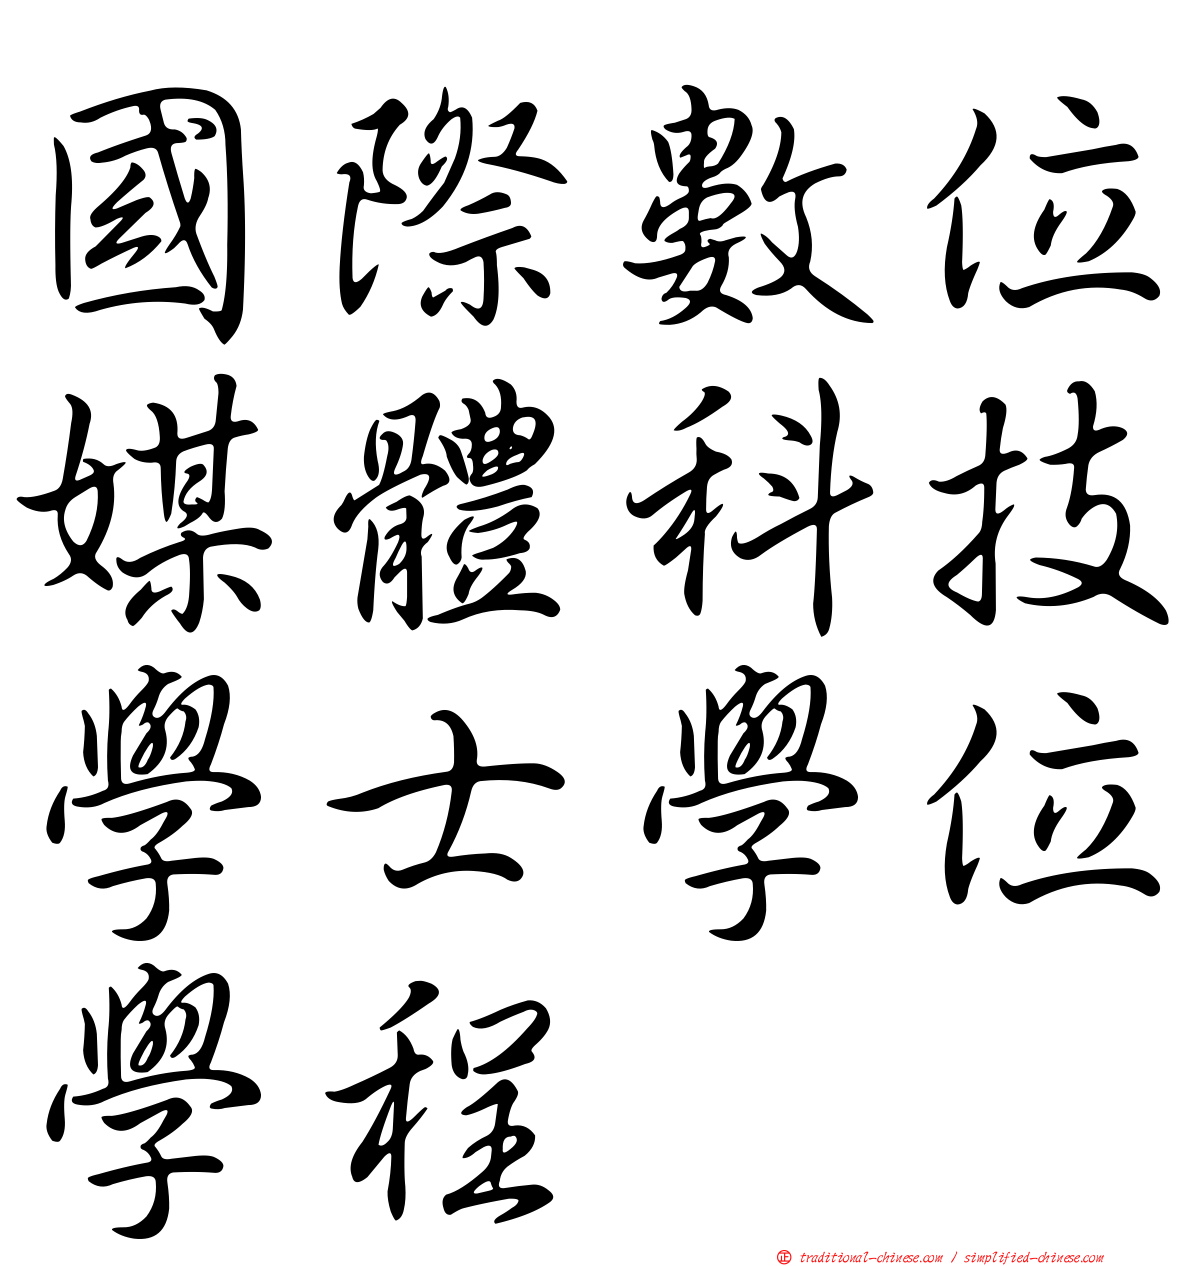 國際數位
媒體科技
學士學位
學程
正 traditional-chinese.com / simplified-chinese.com